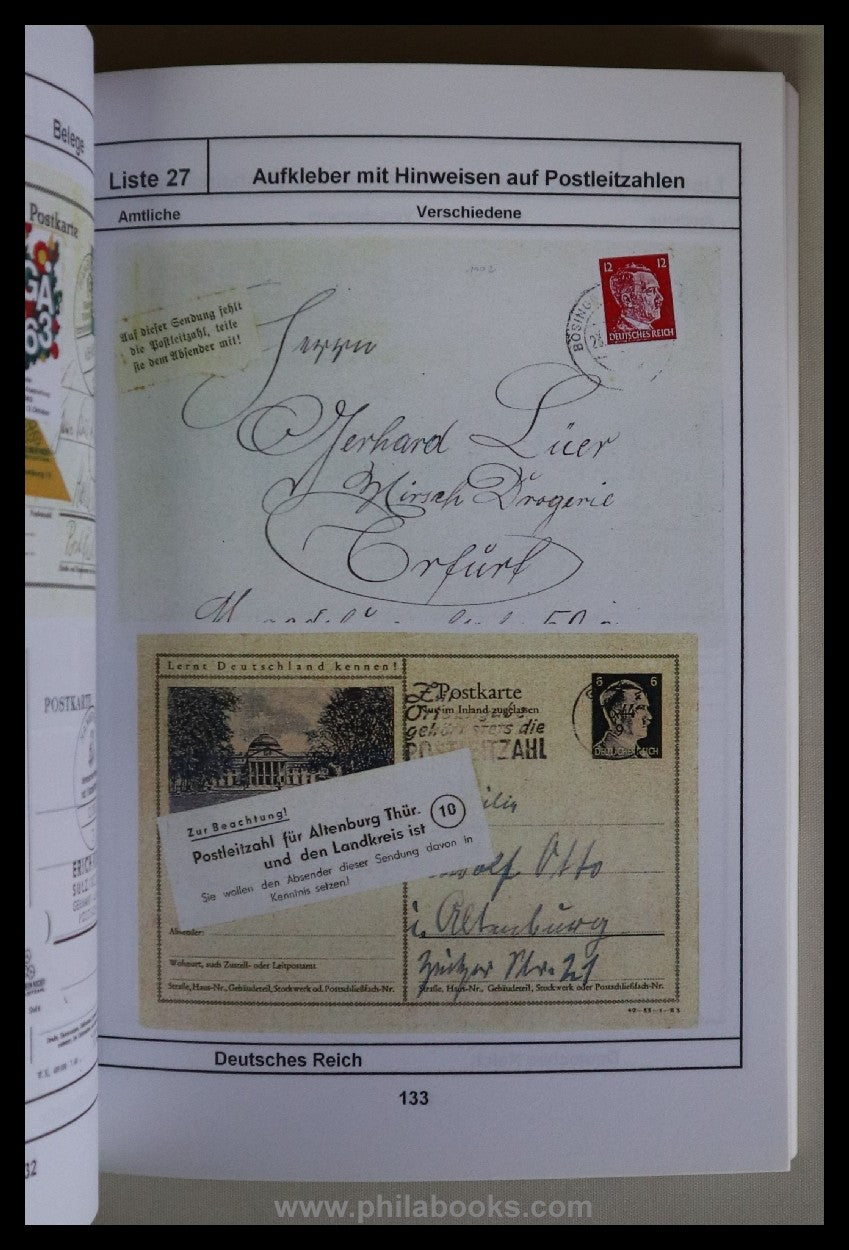 Belege
Postkarte
GA
63
POSTKARTE
32
Liste 27
Aufkleber mit Hinweisen auf Postleitzahlen
Amtliche
Verschiedene
Auf dieser Sendung fehlt
die Postleitzahl, teile
sie dem Absender mit!
12 12
DEUTSCHES REICH
BÖSING
Herrn
Gerhard Lüer
Mirsch Drogerie
Erfurt
Lernt Deutschland kennen!
Postkarte
Nur im Inland zugelassen
gehört stets die
POSTLEITZAHL
6 6
DEUTSCHES REICH
Zur Beachtung!
Postleitzahl für Altenburg Thür. 10
und den Landkreis ist
Sie wollen den Absender dieser Sendung davon in
Kenntnis setzen!
Otto
i. Altenburg
Str. 21
Absender:
Wohnort, auch Zustell- oder Leitpostamt
Straße, Haus-Nr., Gebäudeteil, Stockwerk od. Postschließfach-Nr.
Straße, Haus-Nr., Gebäudeteil, Stockwerk oder Postschließfach-Nr.
Deutsches Reich
133
www.philabooks.com